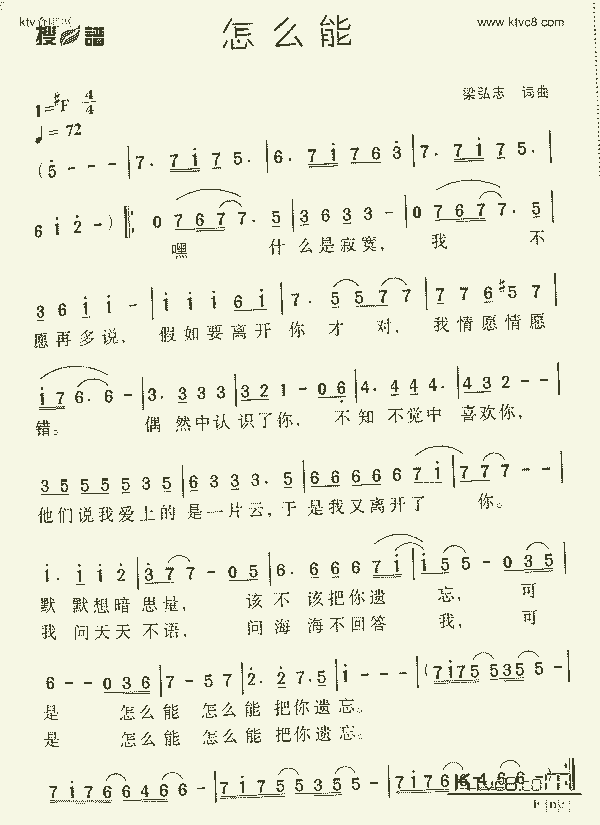 搜谱
www.ktvc8.com
怎么能
梁弘志 词曲
1=#F 4/4
♩= 72
(5 - - - | 7. 7 1 7 5. | 6. 7 1 7 6 3 | 7. 7 1 7 5. |
6 1 2 - ) 0 7 6 7 7. 5 | 3 6 3 3 - | 0 7 6 7 7. 5 |
嘿 什么是寂寞, 我 不
3 6 1 1 - | 1 1 1 1 6 1 | 7. 5 5 7 7 | 7 7 6 #5 7 |
愿再多说, 假如要离开你才对, 我情愿情愿
1 7 6. 6 - | 3. 3 3 3 | 3 2 1 - 0 6 | 4. 4 4 4. | 4 3 2 - - |
错。 偶然中认识了你, 不知不觉中喜欢你,
3 5 5 5 5 3 5 | 6 3 3 3. 5 | 6 6 6 6 6 7 1 | 7 7 7 - - |
他们说我爱上的是一片云,于是我又离开了你。
1. 1 1 2 | 3 7 7 - 0 5 | 6. 6 6 6 7 1 | 1 5 5 - 0 3 5 |
默默想暗思量, 该不该把你遗忘, 可
我问天天不语, 问海海不回答我, 可
6 - - 0 3 6 | 7 - 5 7 | 2. 2 7. 5 | 1 - - - | (7 1 7 5 5 3 5 5 - |
是 怎么能怎么能把你遗忘。
是 怎么能怎么能把你遗忘。
7 1 7 6 6 4 6 6 - | 7 1 7 5 5 3 5 5 - | 7 1 7 6 6 4 6 6 -